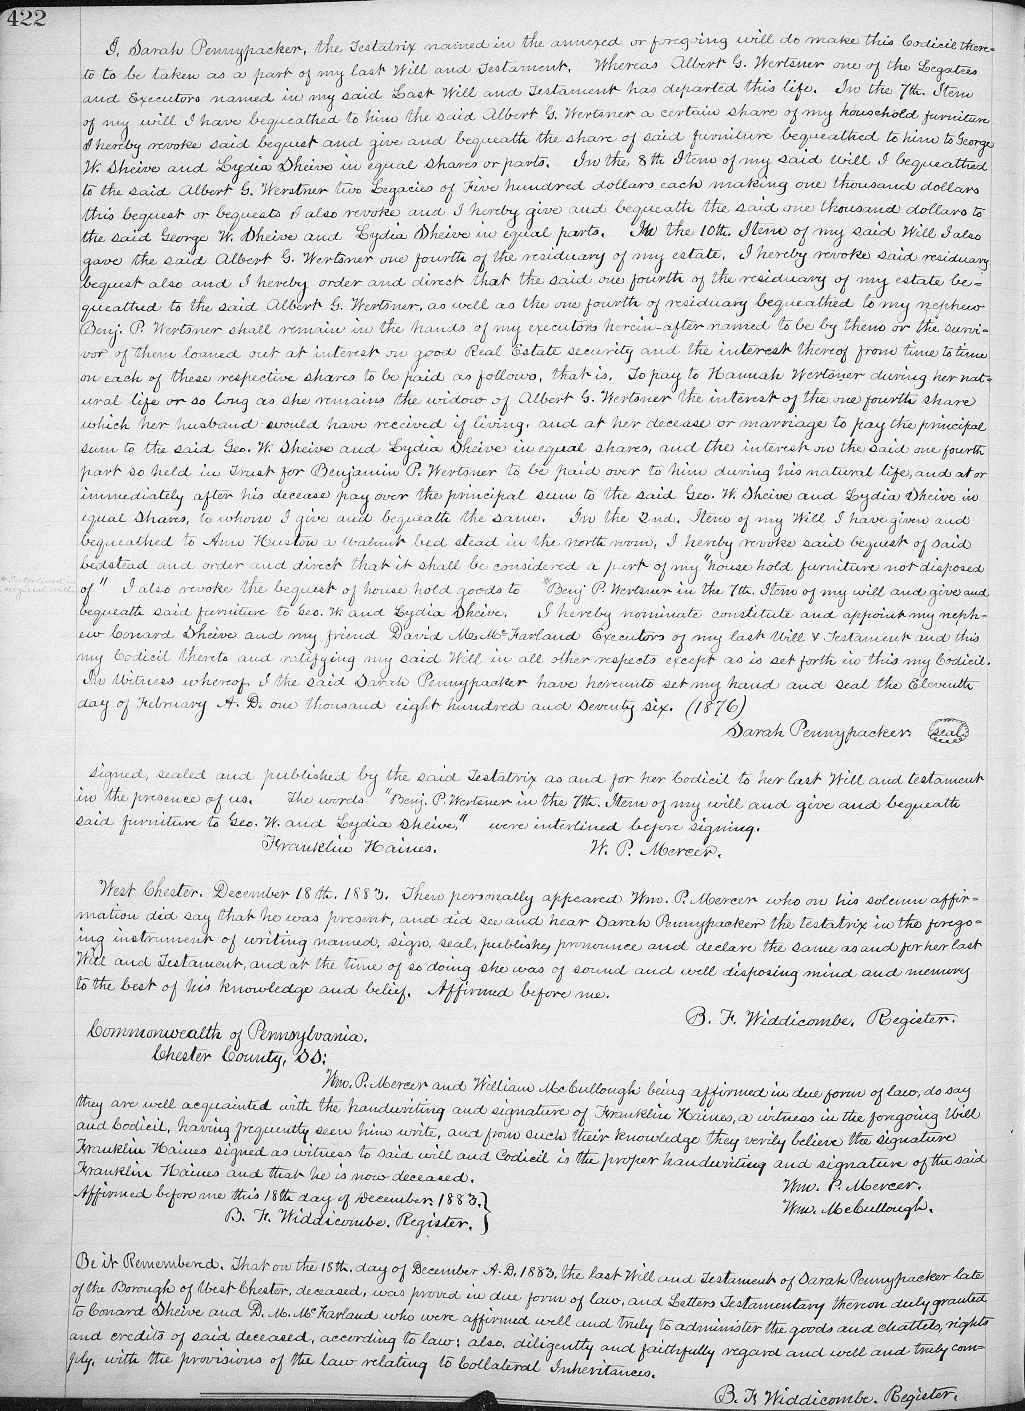 422
I, Sarah Pennypacker, the Testatrix named in the annexed or foregoing will do make this Codicil there=
to to be taken as a part of my last Will and Testament. Whereas Albert G. Wertsner one of the Legatees
and Executors named in my said Last Will and Testament has departed this life. In the 7th. Item
of my will I have bequeathed to him the said Albert G. Wertsner a certain share of my household furniture
I hereby revoke said bequest and give and bequeath the share of said furniture bequeathed to him to George
W. Sheive and Lydia Sheive in equal shares or parts. In the 8th Item of my said Will I bequeathed
to the said Albert G. Werstner two Legacies of Five hundred dollars each making one thousand dollars
this bequest or bequests I also revoke and I hereby give and bequeath the said one thousand dollars to
the said George W. Sheive and Lydia Sheive in equal parts. In the 10th. Item of my said Will I also
gave the said Albert G. Wertsner one fourth of the residuary of my estate. I hereby revoke said residuary
bequest also and I hereby order and direct that the said one fourth of the residuary of my estate be=
queathed to the said Albert G. Wertsner, as well as the one fourth of residuary bequeathed to my nephew
Benj. P. Wertsner shall remain in the hands of my executors herein-after named to be by them or the survi=
vor of them loaned out at interest on good Real Estate security and the interest thereof from time to time
on each of these respective shares to be paid as follows, that is, To pay to Hannah Wertsner during her nat=
ural life or so long as she remains the widow of Albert G. Wertsner the interest of the one fourth share
which her husband would have received if living. and at her decease or marriage to pay the principal
sum to the said Geo. W. Sheive and Lydia Sheive in equal shares, and the interest on the said one fourth
part so held in Trust for Benjamin P. Wertsner to be paid over to him during his natural life, and at or
immediately after his decease pay over the principal sum to the said Geo. W. Sheive and Lydia Sheive in
equal shares, to whom I give and bequeath the same. In the 2nd. Item of my Will I have given and
bequeathed to Ann Huston a walnut bed stead in the north room, I hereby revoke said bequest of said
bedstead and order and direct that it shall be considered a part of my "house hold furniture not disposed
of" I also revoke the bequest of house hold goods to *"Benj P. Wertsner in the 7th. Item of my will and give and
bequeath said furniture to Geo. W. and Lydia Sheive. I hereby nominate constitute and appoint my neph-
ew Conard Sheive and my friend David M. McFarland Executors of my last Will & Testament and this
my Codicil thereto and ratifying my said Will in all other respects except as is set forth in this my Codicil.
In Witness whereof, I the said Sarah Pennypacker have hereunto set my hand and seal the Eleventh
day of February A. D. one thousand eight hundred and seventy six. (1876)
Sarah Pennypacker. seal
Signed, sealed and published by the said Testatrix as and for her Codicil to her last Will and testament
in the presence of us. The words "Benj. P. Wertsner in the 7th. Item of my will and give and bequeath
said furniture to Geo. W. and Lydia Sheive," were interlined before signing.
Franklin Haines. W. P. Mercer.
West Chester. December 18th. 1883. Then personally appeared Wm. P. Mercer who on his solemn affir-
mation did say that he was present, and did see and hear Sarah Pennypacker the testatrix in the forego=
ing instrument of writing named, sign, seal, publish, pronounce and declare the same as and for her last
Will and Testament, and at the time of so doing she was of sound and well disposing mind and memory
to the best of his knowledge and belief. Affirmed before me.
B. F. Widdicombe. Register.
Commonwealth of Pennsylvania.
Chester County, SS:
Wm. P. Mercer and William McCullough being affirmed in due form of law, do say
they are well acquainted with the handwriting and signature of Franklin Haines, a witness in the foregoing Will
and Codicil, having frequently seen him write, and from such their knowledge they verily believe the signature
Franklin Haines signed as witness to said will and Codicil is the proper handwriting and signature of the said
Franklin Haines and that he is now deceased.
Wm. P. Mercer.
Affirmed before me this 18th day of December. 1883.
Wm. McCullough.
B. F. Widdicombe. Register.
Be it Remembered. That on the 18th. day of December A.D. 1883. the last Will and Testament of Sarah Pennypacker late
of the Borough of West Chester, deceased, was proved in due form of law, and Letters Testamentary thereon duly granted
to Conard Sheive and D. M. McFarland who were affirmed well and truly to administer the goods and chattels, rights
and credits of said deceased, according to law; also, diligently and faithfully regard and well and truly com-
ply, with the provisions of the law relating to Collateral Inheritances.
B. F. Widdicombe. Register.